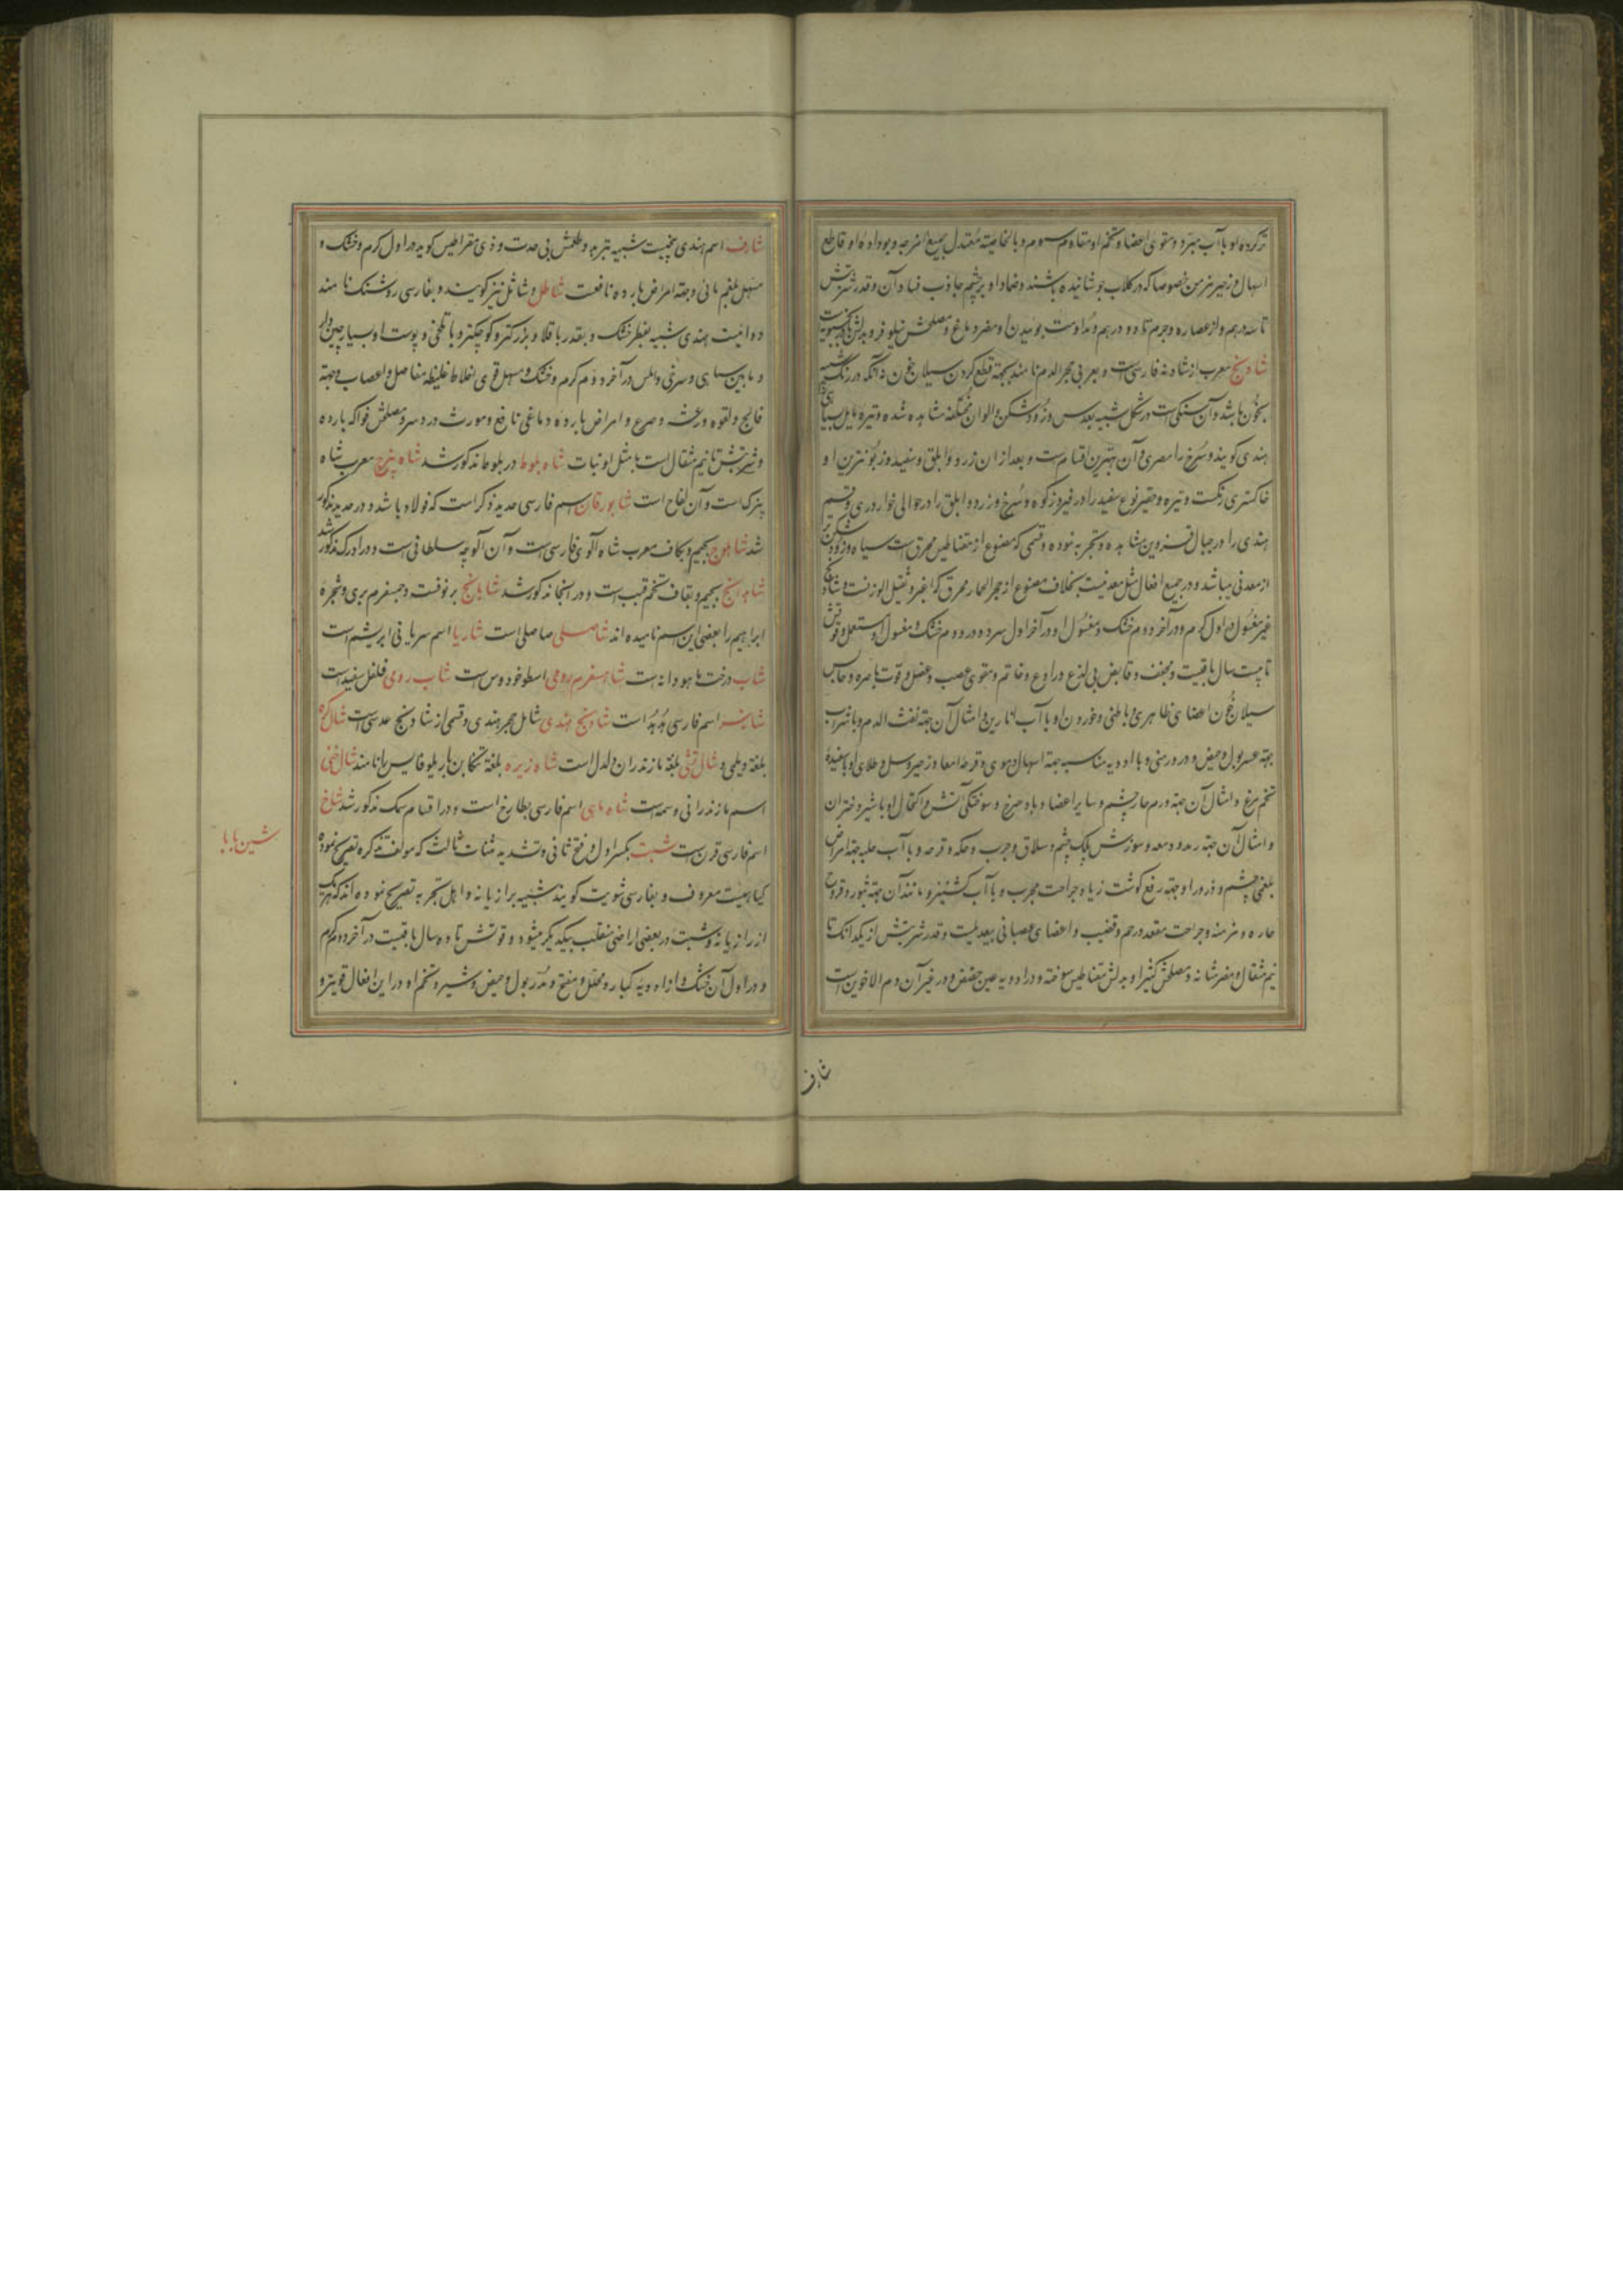 تر کرده او با آب مبرد و مقوی اعضا و تخم او مقاوم سموم و بالخاصیة معتدل جمیع امزجه و بوداده او قاطع
اسهال و زحیر مزمن خصوصا که در کلاب جوشانیده باشند و ضماد او بر چشم جاذب فساد آن و قدر شربتش
تا سه درهم و از عصاره و جرم تا دو درهم و مداومت بوئیدن او مضر دماغ و مصلحش نیلوفر و بدلش
شادنج معرب از شادنه فارسی است و بعربی حجر الدم نامند بجهة قطع کردن سیلان خون نه آنکه در رنگ شبیه
بخون باشد و آن سنکی است در شکل شبیه بعدس و زود شکن و الوان مختلفه مشاهده شده و تیره مایل بسیاهی را
هندی کویند و سرخ را مصری و آن بهترین اقسام است و بعد از آن زرد و ابلق و سفید و زبون ترین او
خاکستری رنکست و تیره و حقیر نوع سفید را در فیروزکوه و سرخ و زرد و ابلق را در حوالی خوار و ری و قسم
هندی را در جبال قزوین مشاهده و تجربه نموده و قسمی که مصنوع از مغناطیس محرق است سیاه و زود شکن تر
از معدنی میباشد و در جمیع افعال مثل معدنیست بخلاف مصنوع از حجر الحمار محرق که اغبر و ثقیل الوزنست و شادنج
غیر مغسول در اول کرم و در آخر دویم خشک و مغسول او در آخر اول سرد و در دویم خشک و مغسول او مستعمل و قوتش
تا بیست سال باقیست و مجفف و قابض بی لذع و رادع و خاتم و مقوی عصب و عضل و قوت باصره و حابس
سیلان خون اعضای ظاهری و باطنی و خوردن او با آب انارین و امثال آن جهة نفث الدم و با شراب
جهة عسر بول و حیض و درور منی و با ادویه مناسبه جهة اسهال دموی و قرحه امعا و زحیر و سل و طلای او با سفیدهٔ
تخم مرغ و امثال آن جهة ورم حار چشم و سایر اعضا و باد سرخ و سوختکی آتش و اکتحال او با شیر دختران
و امثال آن جهة رمد و دمعه و سوزش پلک چشم و سلاق و جرب و حکه و قرحه و با آب حلبه جهة امراض
بلغمی چشم و ذرور او جهة رفع کوشت زیاد و جراحت مجرب و با آب کشنیز و مانند آن جهة بثور و قروح
حاره و مزمنه و جراحت مقعد و رحم و قضیب و اعضای عصبانی بیعدیلست و قدر شربتش از یکدانک تا
نیم مثقال و مضر مثانه و مصلحش کتیرا و بدلش مغناطیس سوخته و در ادویه عین حضض و در غیر آن دم الاخوین است
شارف
شارف اسم هندی بیخیست شبیه بتربد و طعمش بی حدت و ذی مقراطیس کوید در اول کرم و خشک و
مسهل بلغم مائی و جهة امراض بارده نافعست شاطل و شاتل نیز کویند و بفارسی روشنک نامند
دوائیست هندی شبیه بفطر خشک و بقدر باقلا و بزرکتر و کوچکتر و با تلخی و پوست او بسیار چین دار
و مابین سیاهی و سرخی و املس در آخر دویم کرم و خشک و مسهل قوی اخلاط غلیظه مفاصل و اعصاب و جهة
فالج و لقوه و رعشه و صرع و امراض بارده دماغی نافع و مورث درد سر و مصلحش فواکه بارده
و شربتش تا نیم مثقال است با مثل او نبات شاه بلوط در بلوط مذکور شد شاه بنزج معرب شاه
بنزک است و آن لفاح است شابورقان اسم فارسی حدید ذکر است که فولاد باشد و در حدید مذکور
شد شاهلوج بجیم و بکاف معرب شاه آلوی فارسی است و آن آلوچه سلطانی است و در ادرک مذکور شد
شاهدانج بجیم و بقاف تخم قنب است و در انجا مذکور شد شابانج برنوفست و جمسفرم بری و شجره
ابراهیم را بعضی باین اسم نامیده اند شاصلی صاصلی است شاریا اسم سریانی ابریشم است
شاب درخت ماهودانه است شاهسفرم رومی اسطوخودوس است شاب روی فلفل سفید است
شانه سر اسم فارسی هدهد است شادنج هندی شامل حجر هندی و قسمی از شادنج عدسی است شال کره
بلغة دیلمی و شال تشی بلغة مازندران دلدل است شاه زیره بلغة تنکابن هاریلوفایس را نامند شال خنی
اسم مازندرانی وسمه است شاه ماهی اسم فارسی بطارخ است و در اقسام سمک مذکور شد شاخ
اسم فارسی قرن است شبت بکسر اول و فتح ثانی و تشدید مثناة ثالث که مولف تذکره تصریح نموده
کیاهیست معروف و بفارسی شویت کویند شبیه برازیانه و اهل تجربه تصریح نموده اند که هر یک
از رازیانه و شبت در بعضی اراضی منقلب بیکدیکر میشود و قوتش تا ده سال باقیست در آخر دویم کرم
و در اول آن خشک و از ادویه کبار و محلل و مفتح و مدر بول و حیض و شیر و تخم او در این افعال قویتر و
شین با با